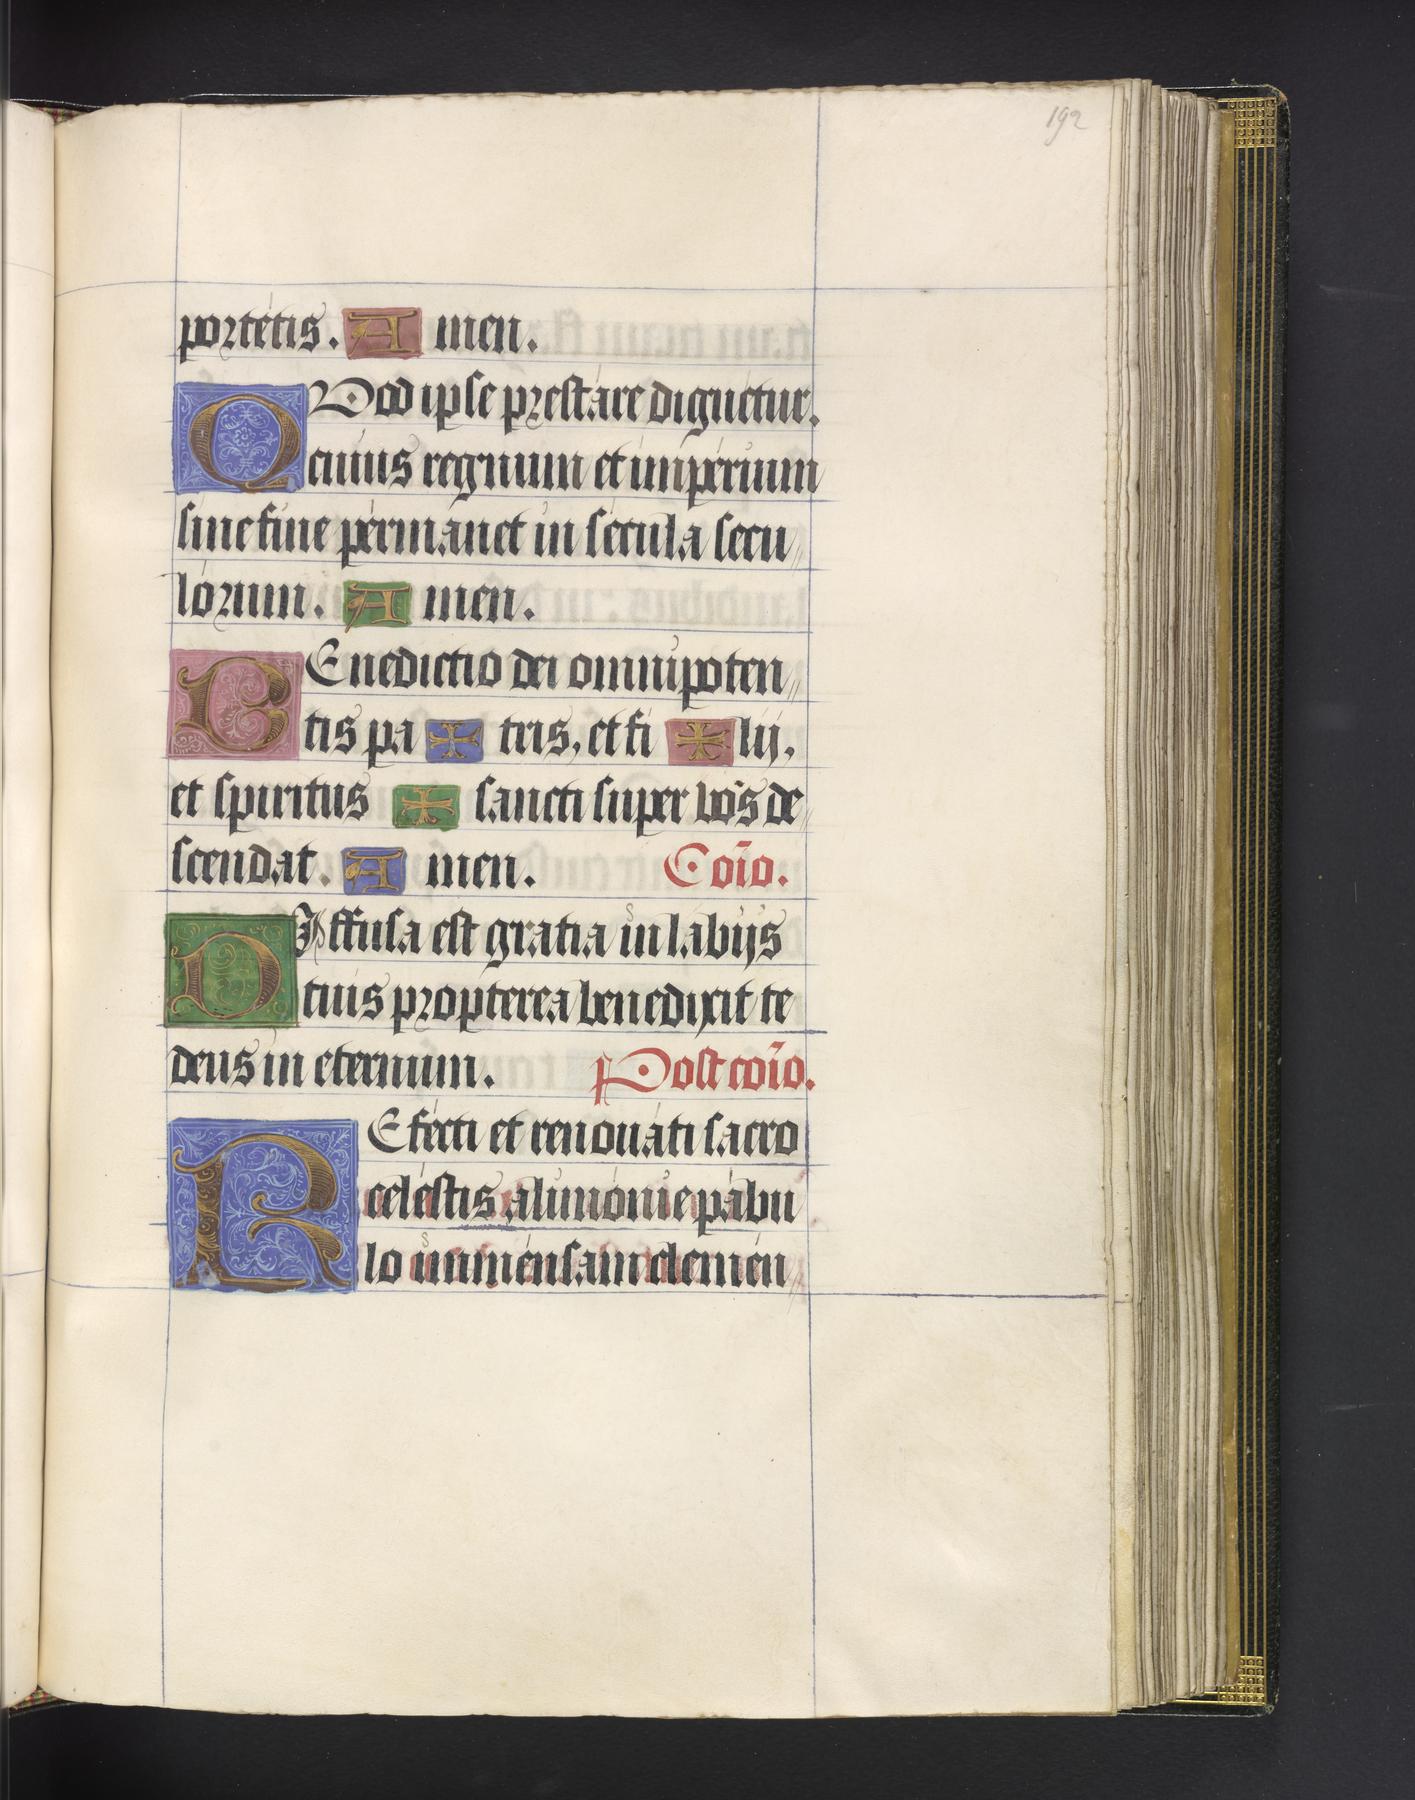 192
portétis. Amen.
QVod ipse prestáre dignétur.
cuius regnum et impérium
sine fine pérmanet in sécula secu//
lórum. Amen.
BEnedictio dei omnipoten//
tis pa ✠ tris, et fi ✠ lij,
et spiritus ✠ sancti super vós de//
scendat. Amen. Coīo.
DIffusa est gratia in labijs
tuis propterea benedixit te
deus in eternum. Post coīo.
REfécti et renouáti sacro
celéstis alimónie pábu
lo imménsam clemén//